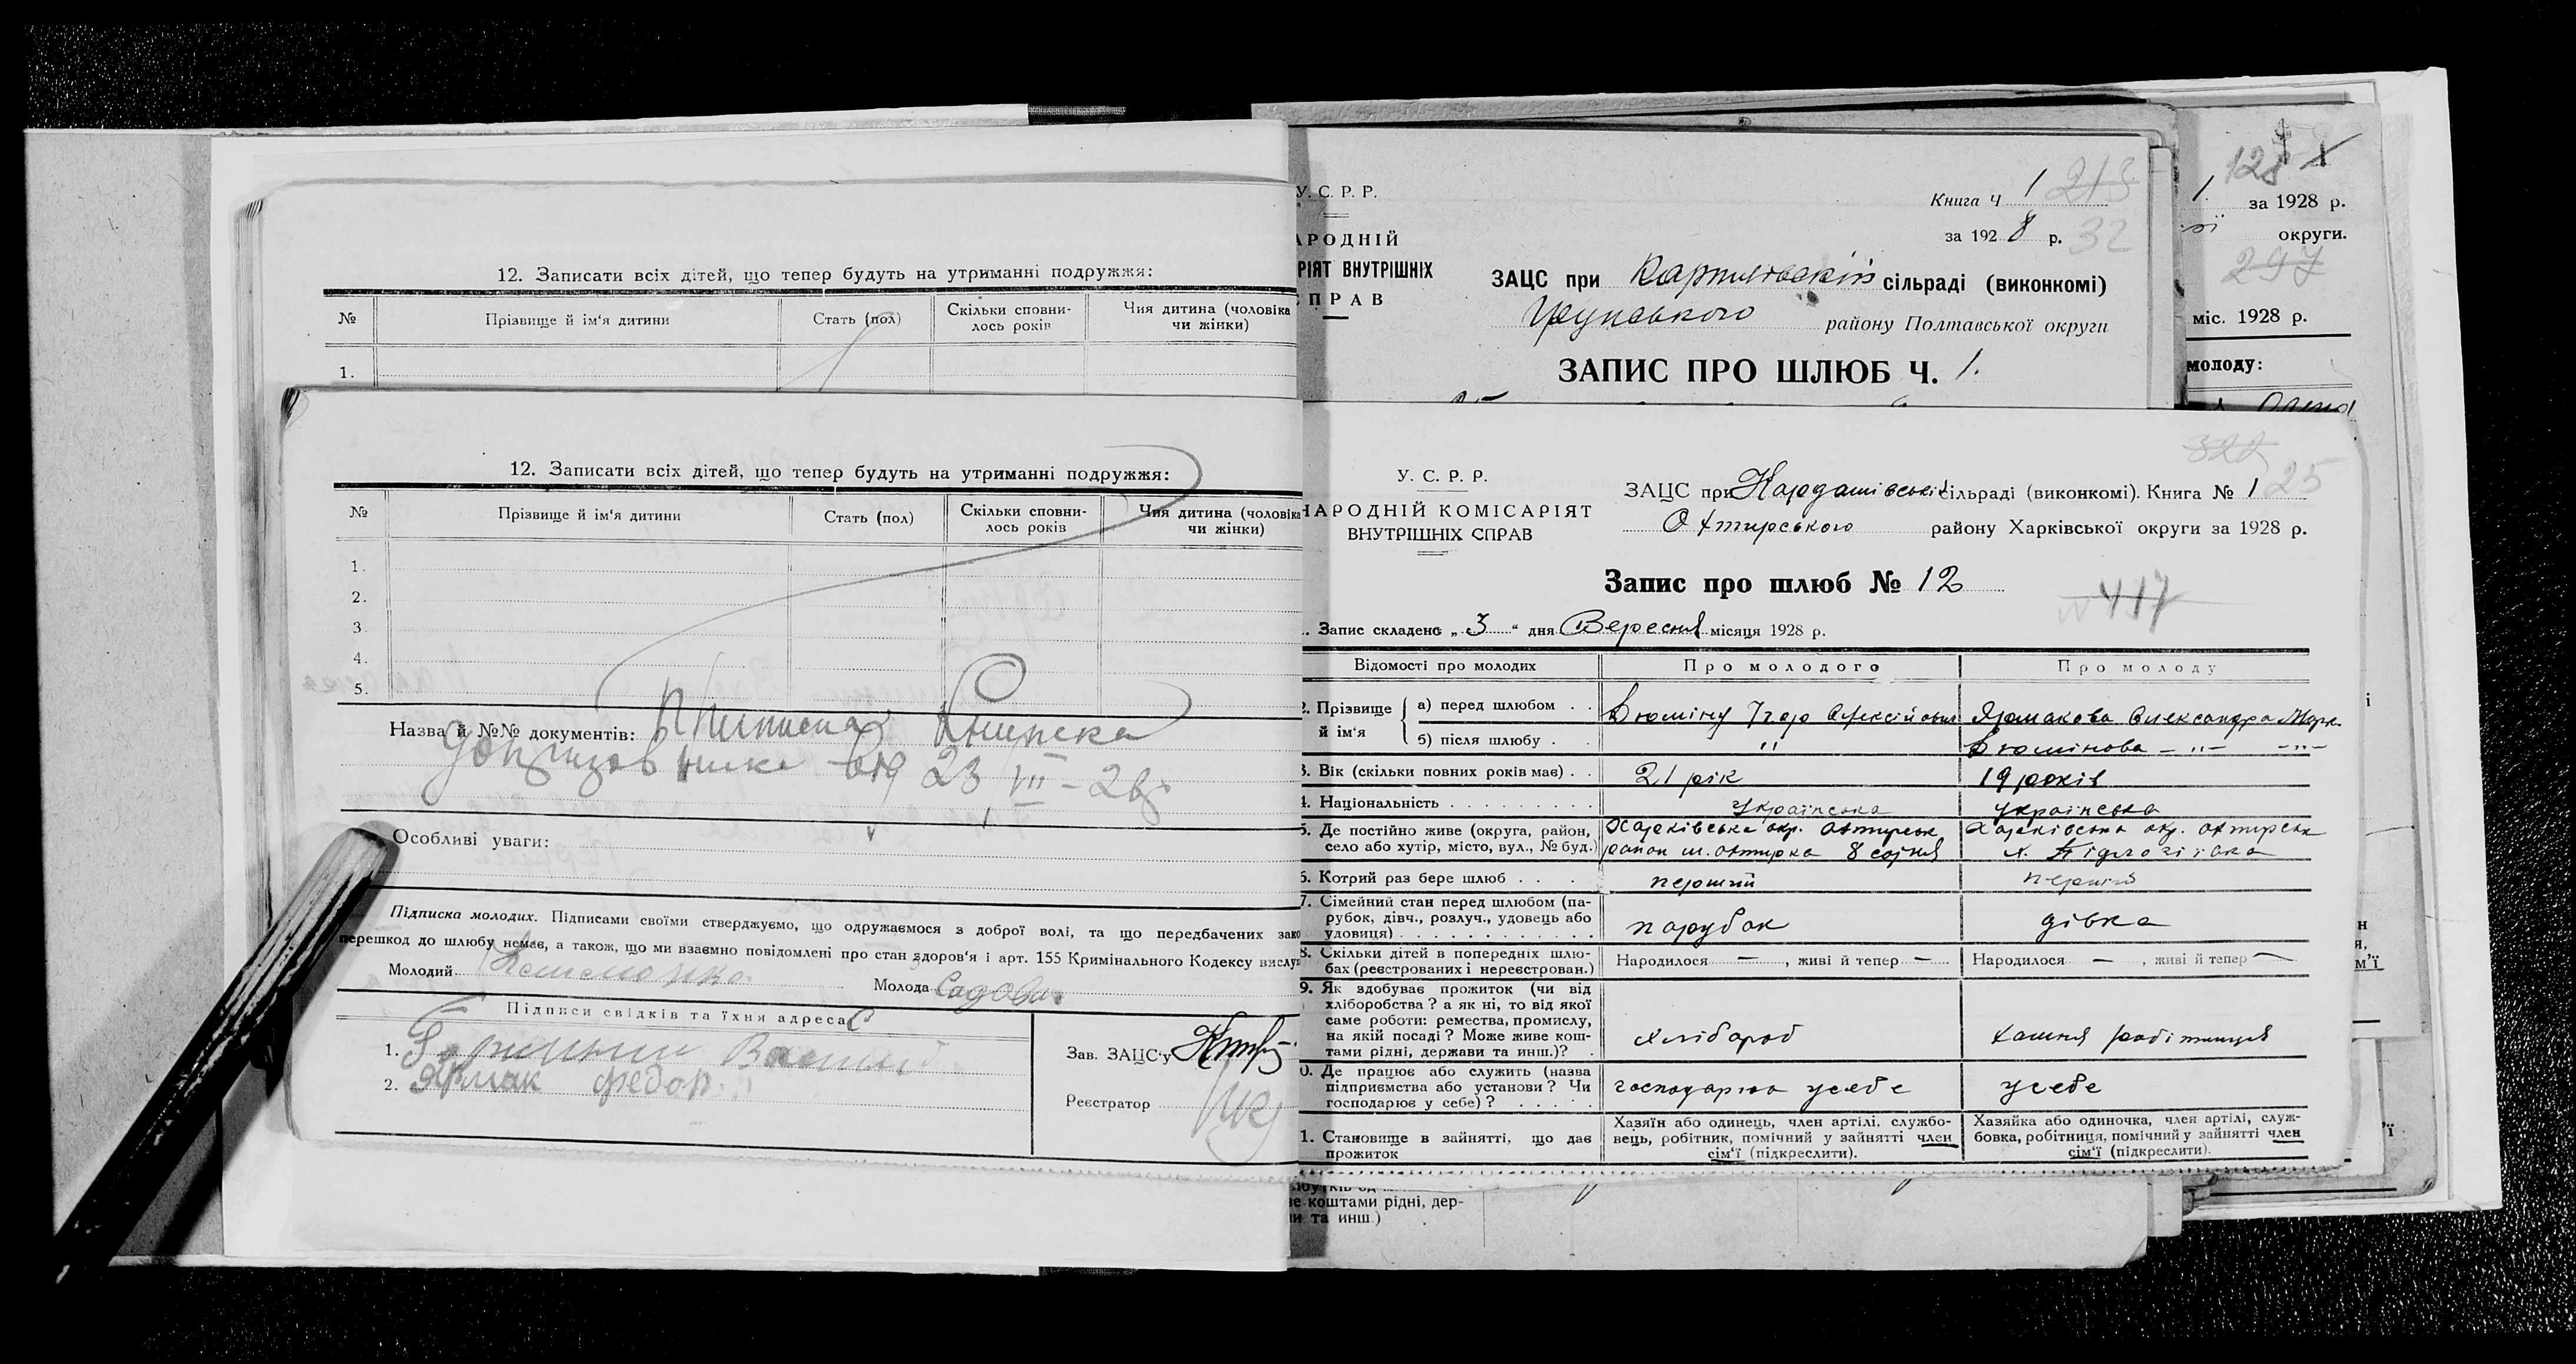 12. Записати всіх дітей, що тепер будуть на утриманні подружжя:
№ Прізвище й ім'я дитини Стать (пол) Скільки сповни-
лось років Чия дитина (чоловіка
чи жінки)
1.
12. Записати всіх дітей, що тепер будуть на утриманні подружжя:
№ Прізвище й ім'я дитини Стать (пол) Скільки сповни-
лось років Чия дитина (чоловіка
чи жінки)
1.
2.
3.
4.
5.
Назва й №№ документів:
від 23/VII-28
Особливі уваги:
Підписка молодих. Підписами своїми стверджуємо, що одружаємося з доброї волі, та що передбачених зако
перешкод до шлюбу немає, а також, що ми взаємно повідомлені про стан здоров'я і арт. 155 Кримінального Кодексу вислу
Молодий Молода Садова
Підписи свідків та їхня адреса
1. Василь
2. Ярмак Федор
Зав. ЗАЦС'у
Реєстратор
У. С. Р. Р.
АРОДНІЙ
РІЯТ ВНУТРІШНІХ
ПРАВ
Книга Ч 1 218
за 1928 р. 32
ЗАЦС при сільраді (виконкомі)
району Полтавської округи
ЗАПИС ПРО ШЛЮБ Ч. 1.
128
1. за 1928 р.
округи.
297
міс. 1928 р.
молоду:
У. С. Р. Р.
НАРОДНІЙ КОМІСАРІЯТ
ВНУТРІШНІХ СПРАВ
322
ЗАЦС при Кардашівській сільраді (виконкомі). Книга № 1 25
Охтирського району Харківської округи за 1928 р.
Запис про шлюб № 12
№ 417
Запис складено „3“ дня Вересня місяця 1928 р.
Відомості про молодих Про молодого Про молоду
2. Прізвище й ім'я а) перед шлюбом Дюміну Ігор Олексійович Ярмакова Олександра Марк.
б) після шлюбу " Дюмінова -"- -"-
3. Вік (скільки повних років має) 21 рік 19 років
4. Національність українська українська
5. Де постійно живе (округа, район,
село або хутір, місто, вул., № буд.) Харківська окр. Охтирськ
район м. Охтирка 8 сотня Харківська окр. Охтирськ
6. Котрий раз бере шлюб перший перший
7. Сімейний стан перед шлюбом (па-
рубок, дівч., розлуч., удовець або
удовиця) парубок дівка
8. Скільки дітей в попередніх шлю-
бах (реєстрованих і нереєстрован.) Народилося — , живі й тепер — Народилося — , живі й тепер —
9. Як здобуває прожиток (чи від
хліборобства? а як ні, то від якої
саме роботи: ремества, промислу,
на якій посаді? Може живе кош-
тами рідні, держави та инш.)? хлібороб хатня робітниця
0. Де працює або служить (назва
підприємства або установи? Чи
господарює у себе)? господарює усебе усебе
1. Становище в зайнятті, що дає
прожиток Хазяїн або одинець, член артілі, службо-
вець, робітник, помічний у зайнятті член
сім'ї (підкреслити). Хазяйка або одиночка, член артілі, служ-
бовка, робітниця, помічний у зайнятті член
сім'ї (підкреслити).
коштами рідні, дер-
та инш.)